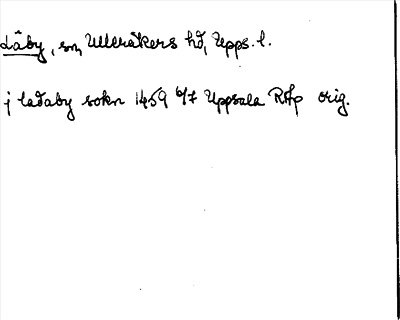 Låby, sn, Ulleråkers hd, Upps. l.
j ladaby sokn 1459 6/7 Uppsala RAp orig.